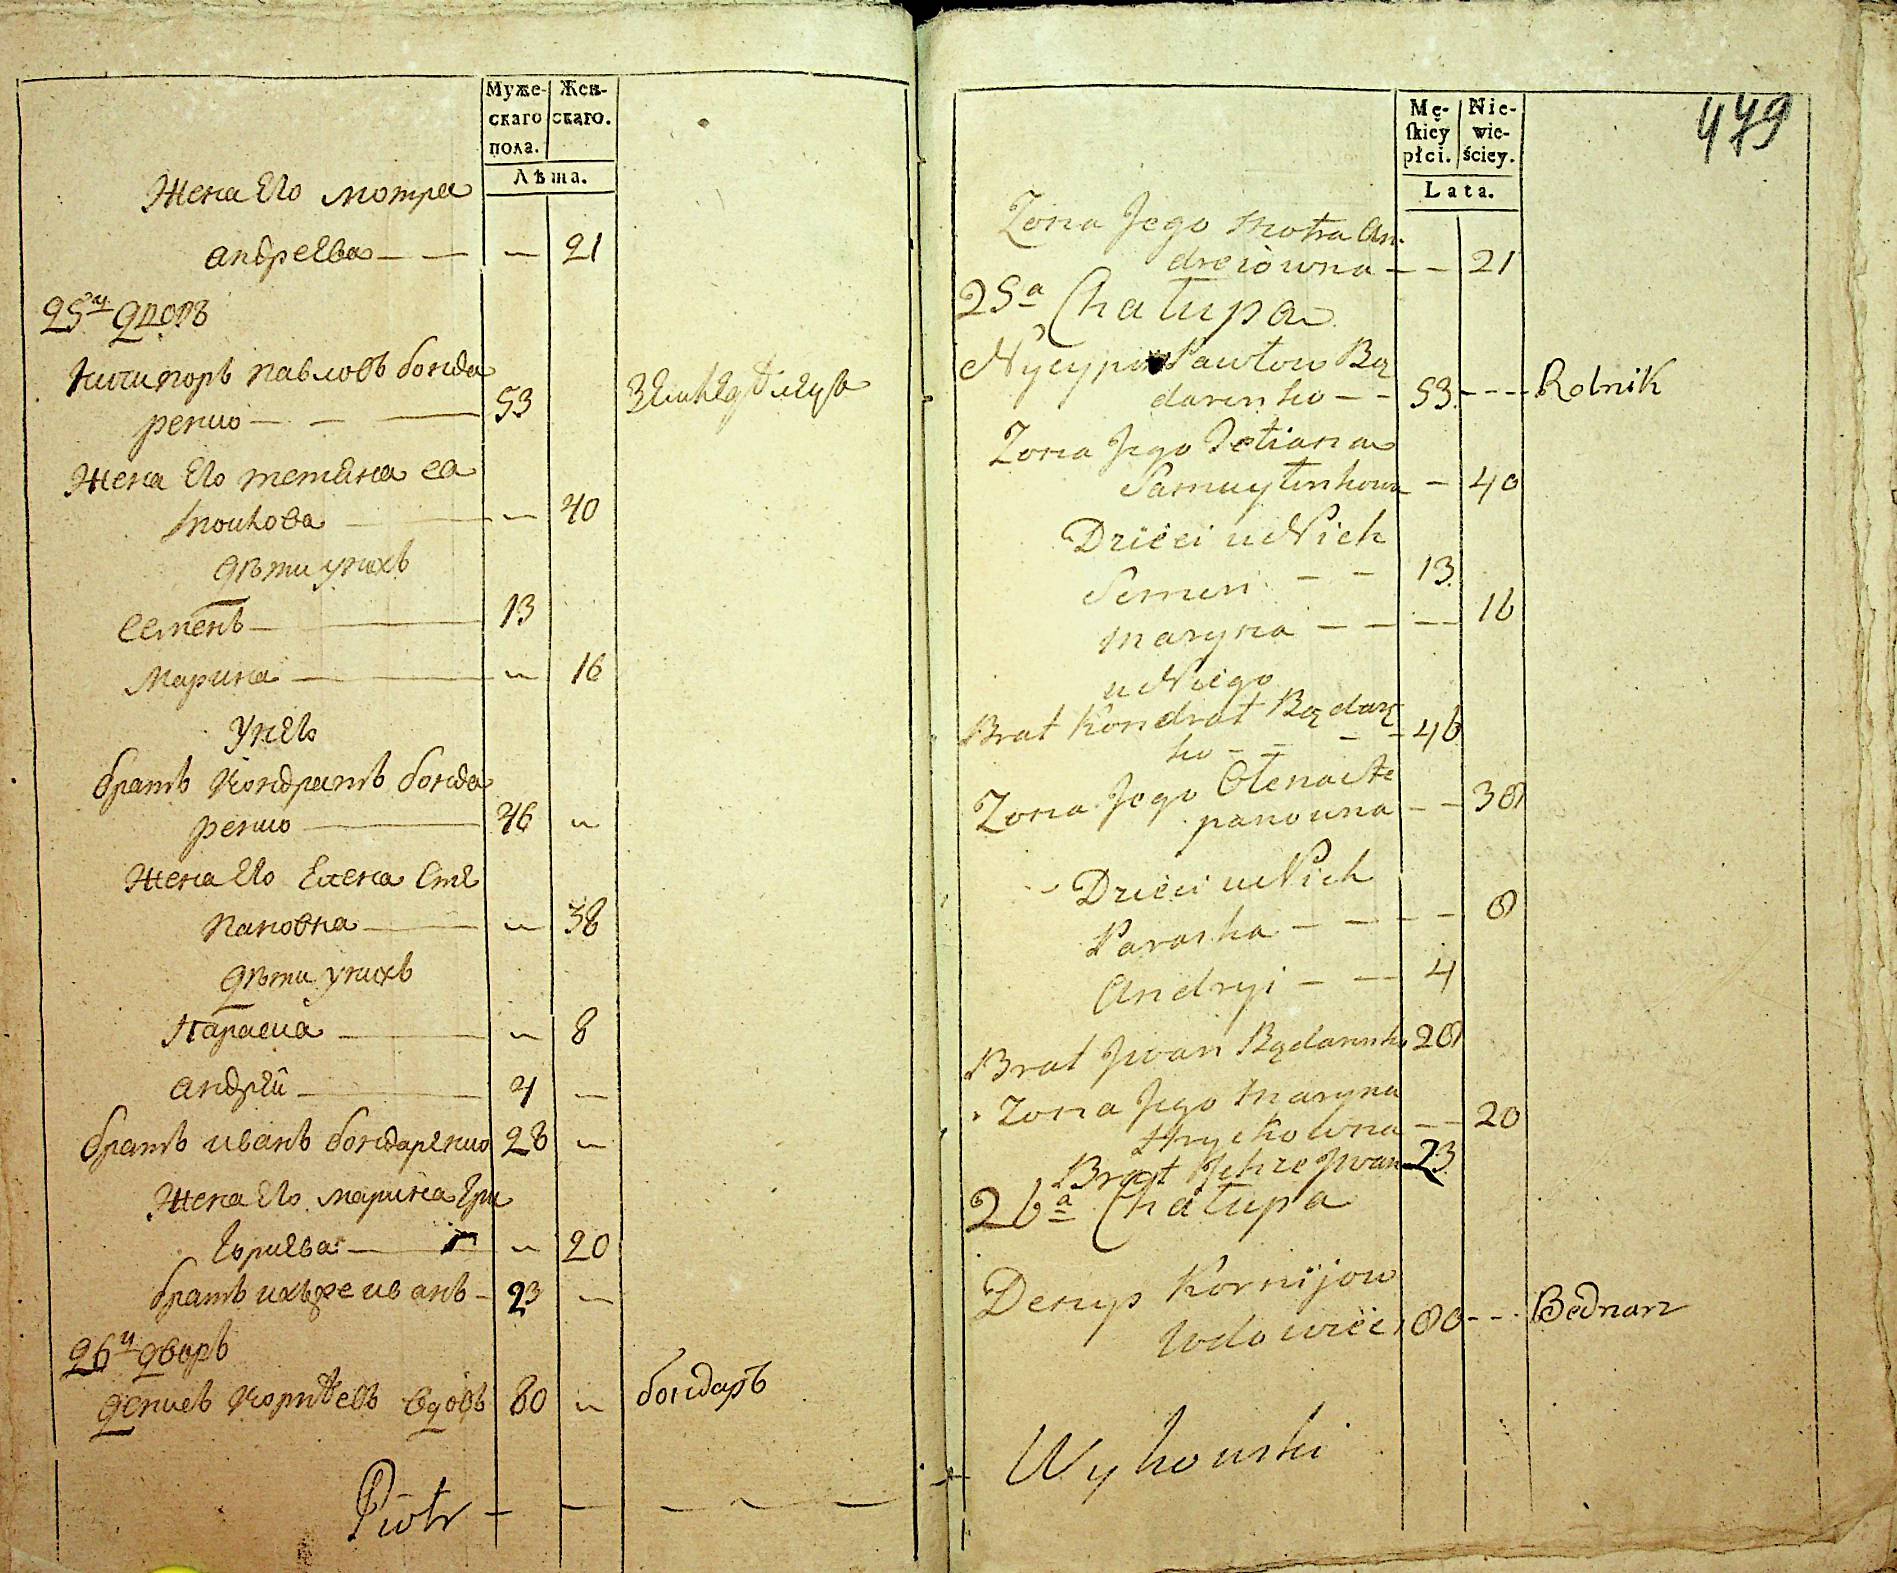 Муже-
скаго
пола.
Жен-
скаго.
Лѣта.
Жена Его мотря
андреева — — — 21
25й дворъ
Ничипоръ павловъ бонда
ренко — — — 53 земледѣлецъ
Жена Его тетяна са
мойлова — — 40
дѣти унихъ
Семенъ — — 13
Марина — — — 16
унего
братъ Кондратъ бонда
ренко — 46 —
Жена Его Елена Сте
пановна — — 38
дѣти унихъ
Параска — — 8
андрей — 4 —
братъ иванъ бондаренко 28 —
Жена Его марина Гри
горьева — — 20
братъ ихъже иванъ — 23 —
26й дворъ
денисъ Корнѣевъ вдовъ 80 — бондаръ
Piotr — — — — —
479
Mę-
skiey
płci.
Nie-
wie-
ściey.
Lata.
Zona Jego Motra An-
dreiowna — — 21
25a Chałupa
Nycypor Pawłow Bą
darenko — — 53 — — — Rolnik
Zona Jego Tetiana
Samuyłenkowa — 40
Dzieci u Nich
Semen — — 13
Maryna — — — — 16
u Niego
Brat Kondrat Bądarę
ko — — — — 46
Zona Jego Ołena Ste
panowna — — 38
Dzieci u Nich
Paraska — — — — 8
Andryi — — 4
Brat Jwan Bądarenko 28
Zona Jego Maryna
Hryckowna — — 20
Brat Jchze Jwan 23
26a Chałupa
Denys Kornijow
wdowiec 80 — — — Bednarz
Wykowski